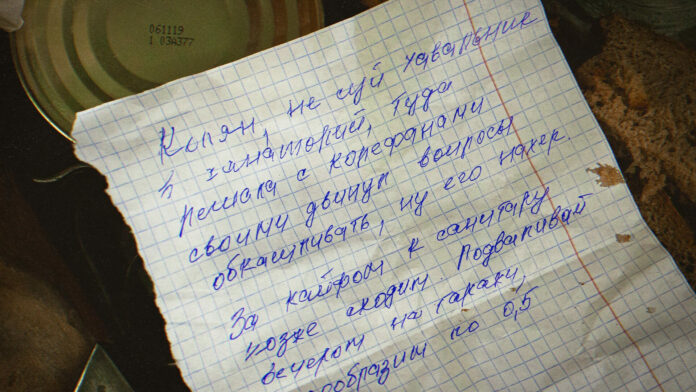 061119
1 03A377
Колян, не суй хавальник
в санаторий, туда
решала с корефанами
своими двинул вопросы
обкашливать, ну его нахер.
За кайфом к санитару
позже сходим. Подваливай
вечером на гаражи,
сообразим по 0,5